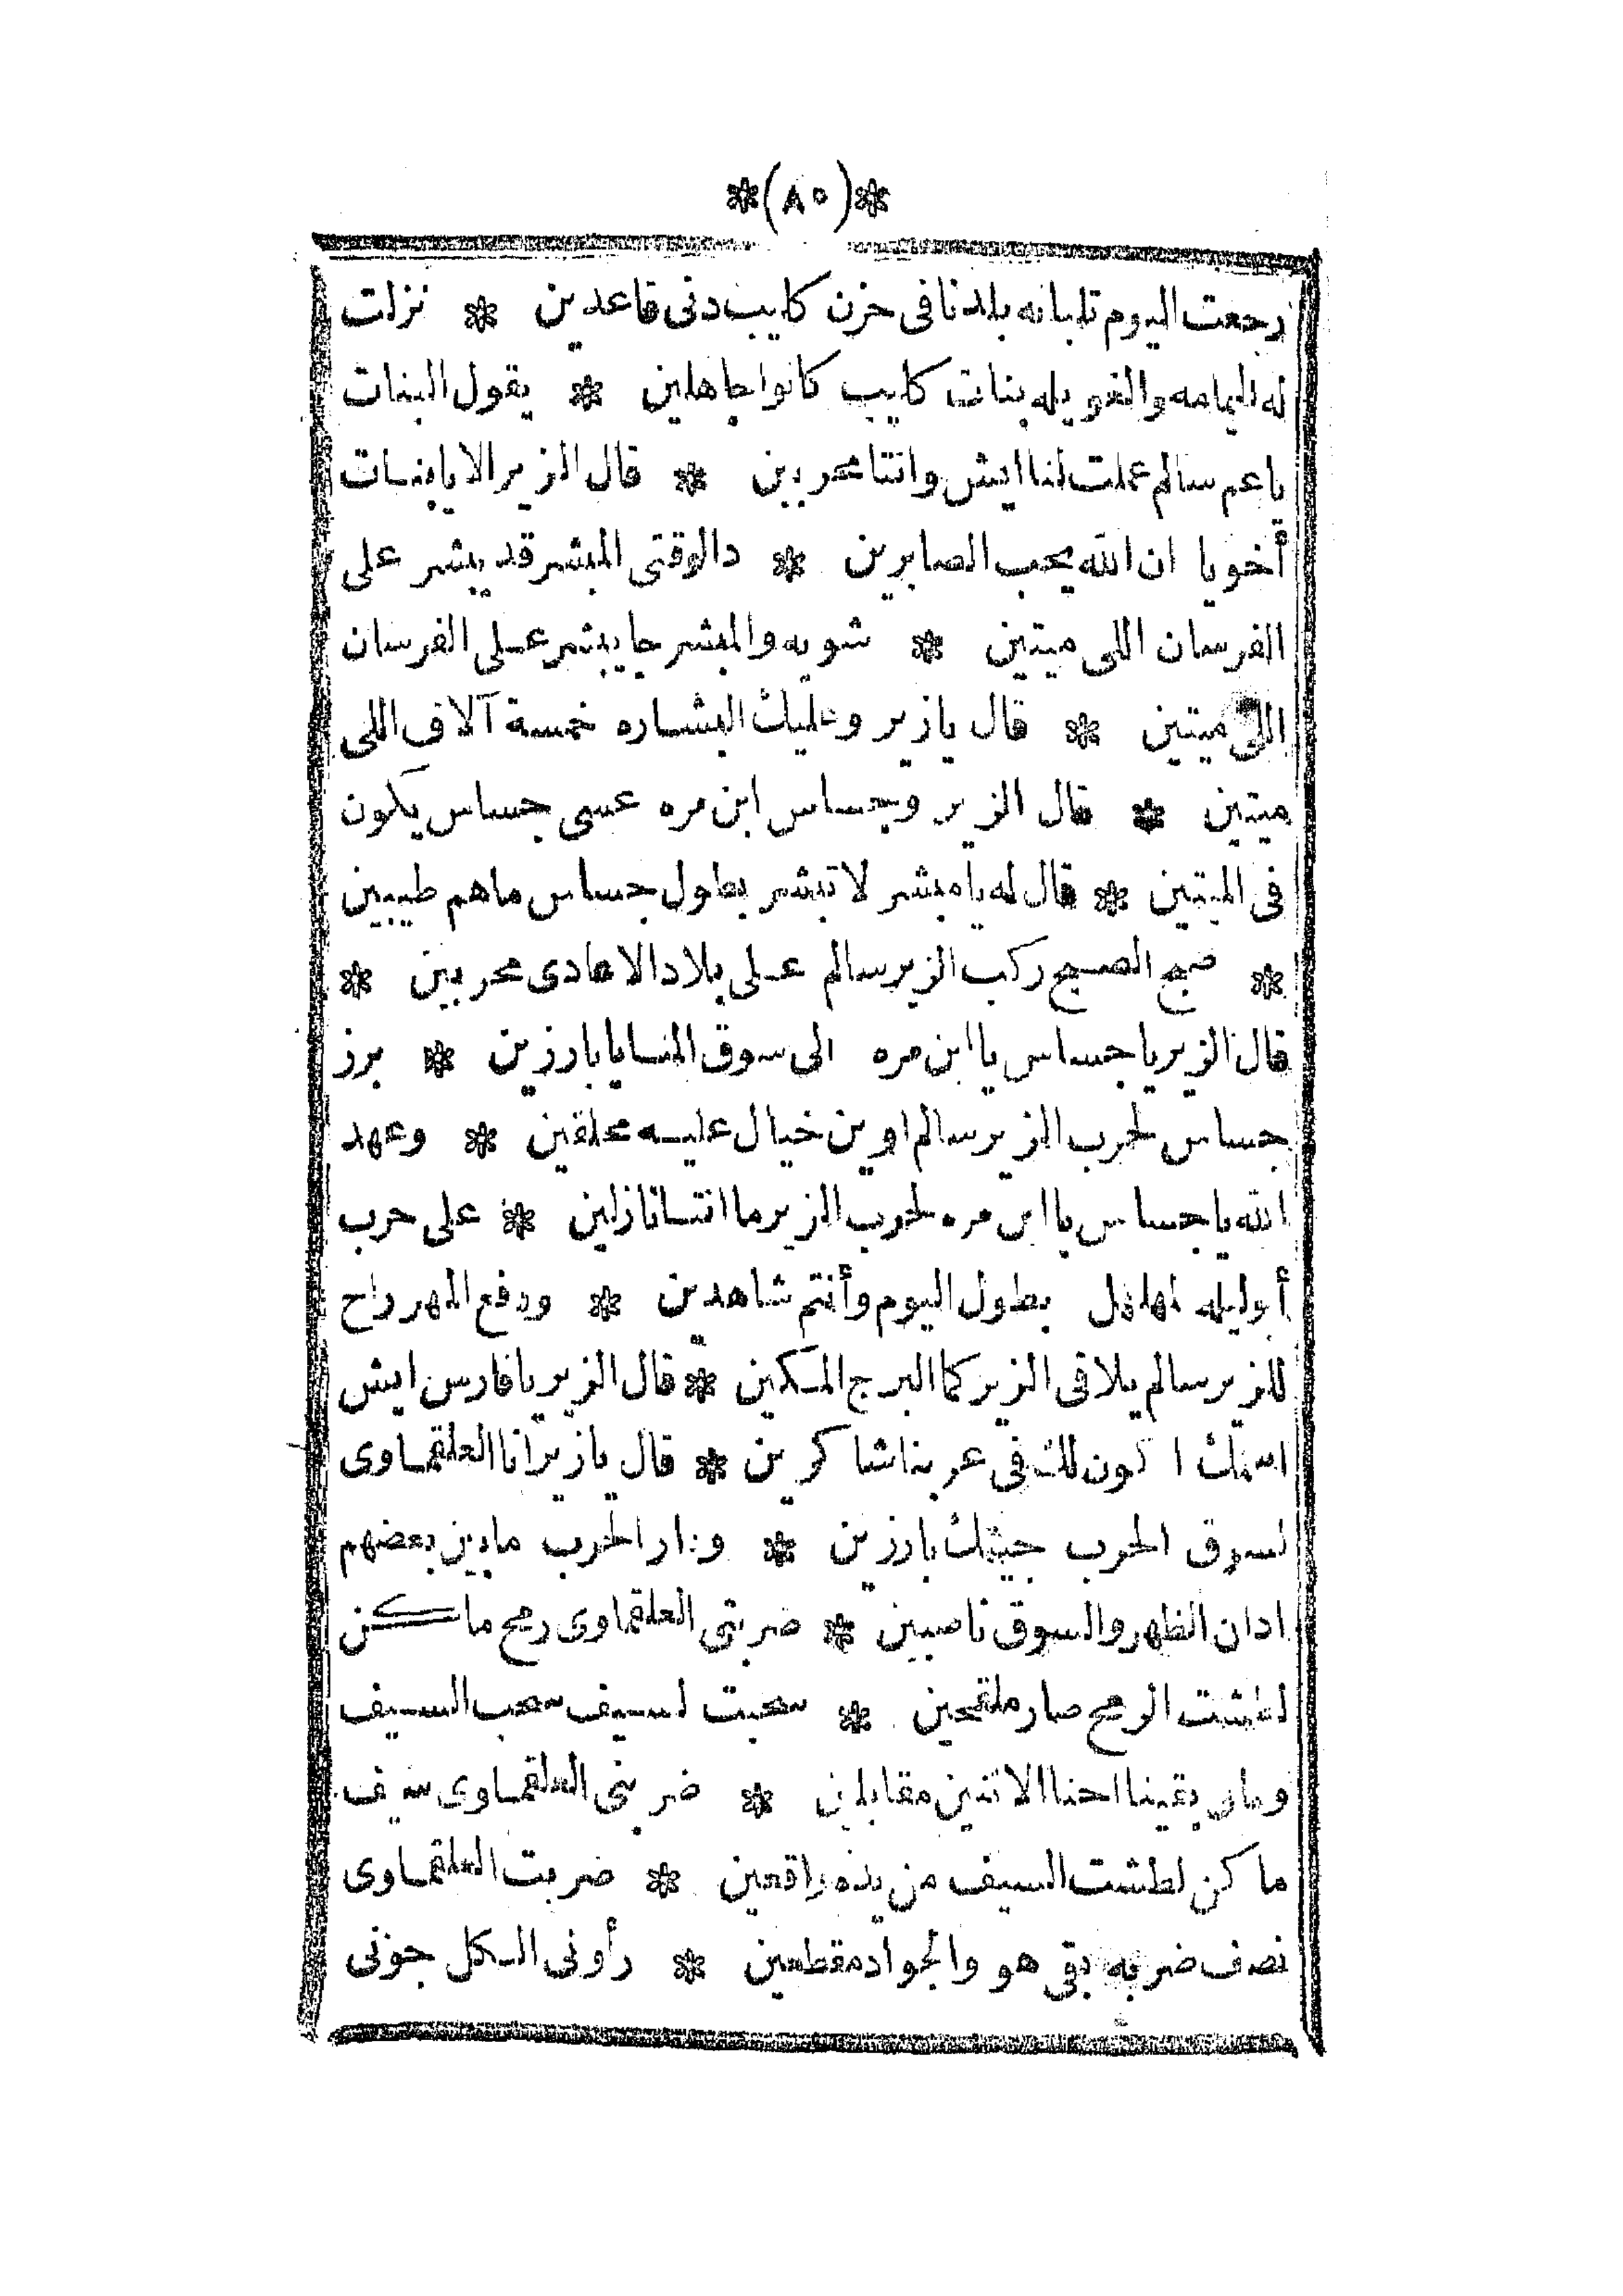 *(٨٥)*
رجعت اليوم تلبانه بلدنا فى حزن كليب دنى قاعدين * نزلت
له اليمامه والغويله بنات كليب كانوا جاهلين * يقول البنات
ياعم سالم عملت لنا ايش وانتا محربين * قال الزير الا يابنات
أخويا ان الله يحب الصابرين * دالوقتى المبشر قد يبشر على
الفرسان اللى ميتين * شويه والمبشر جا يبشر على الفرسان
اللى ميتين * قال يازير وعليك البشاره خمسة آلاف اللى
ميتين * قال الزير وجساس ابن مره عسى جساس يكون
فى الميتين * قال له يا مبشر لا تبشر بطول جساس ماهم طيبين
* صبح الصبح ركب الزير سالم على بلاد الاعادى محربين *
قال الزير يا جساس يا ابن مره الى سوق المنايا بارزين * برز
جساس لحرب الزير سالم اوين خيال عليه محلقين * وعهد
الله يا جساس يا ابن مره لحرب الزير ما انتا نازلين * على حرب
أبوليله المهلهل بطول اليوم وأنتم شاهدين * ودفع المهر راح
للزير سالم يلاقى الزير كما البرج المكين * قال الزير يا فارس ايش
اسمك اكون لك فى عربنا شاكرين * قال يازير انا العلقماوى
لسوق الحرب جيتك بارزين * ودار الحرب مابين بعضهم
ادان الظهر والسوق ناصبين * ضربنى العلقماوى رمح ماكن
لطشت الرمح صار ملقحين * سحبت لسيف سحب السيف
وهابقينا احنا الاتنين مقابلين * ضربنى العلقماوى سيف
ماكن لطشت السيف من يده واقعين * ضربت العلقماوى
نصف ضربه بقى هو والجواد مقطعين * رأونى الكل جونى